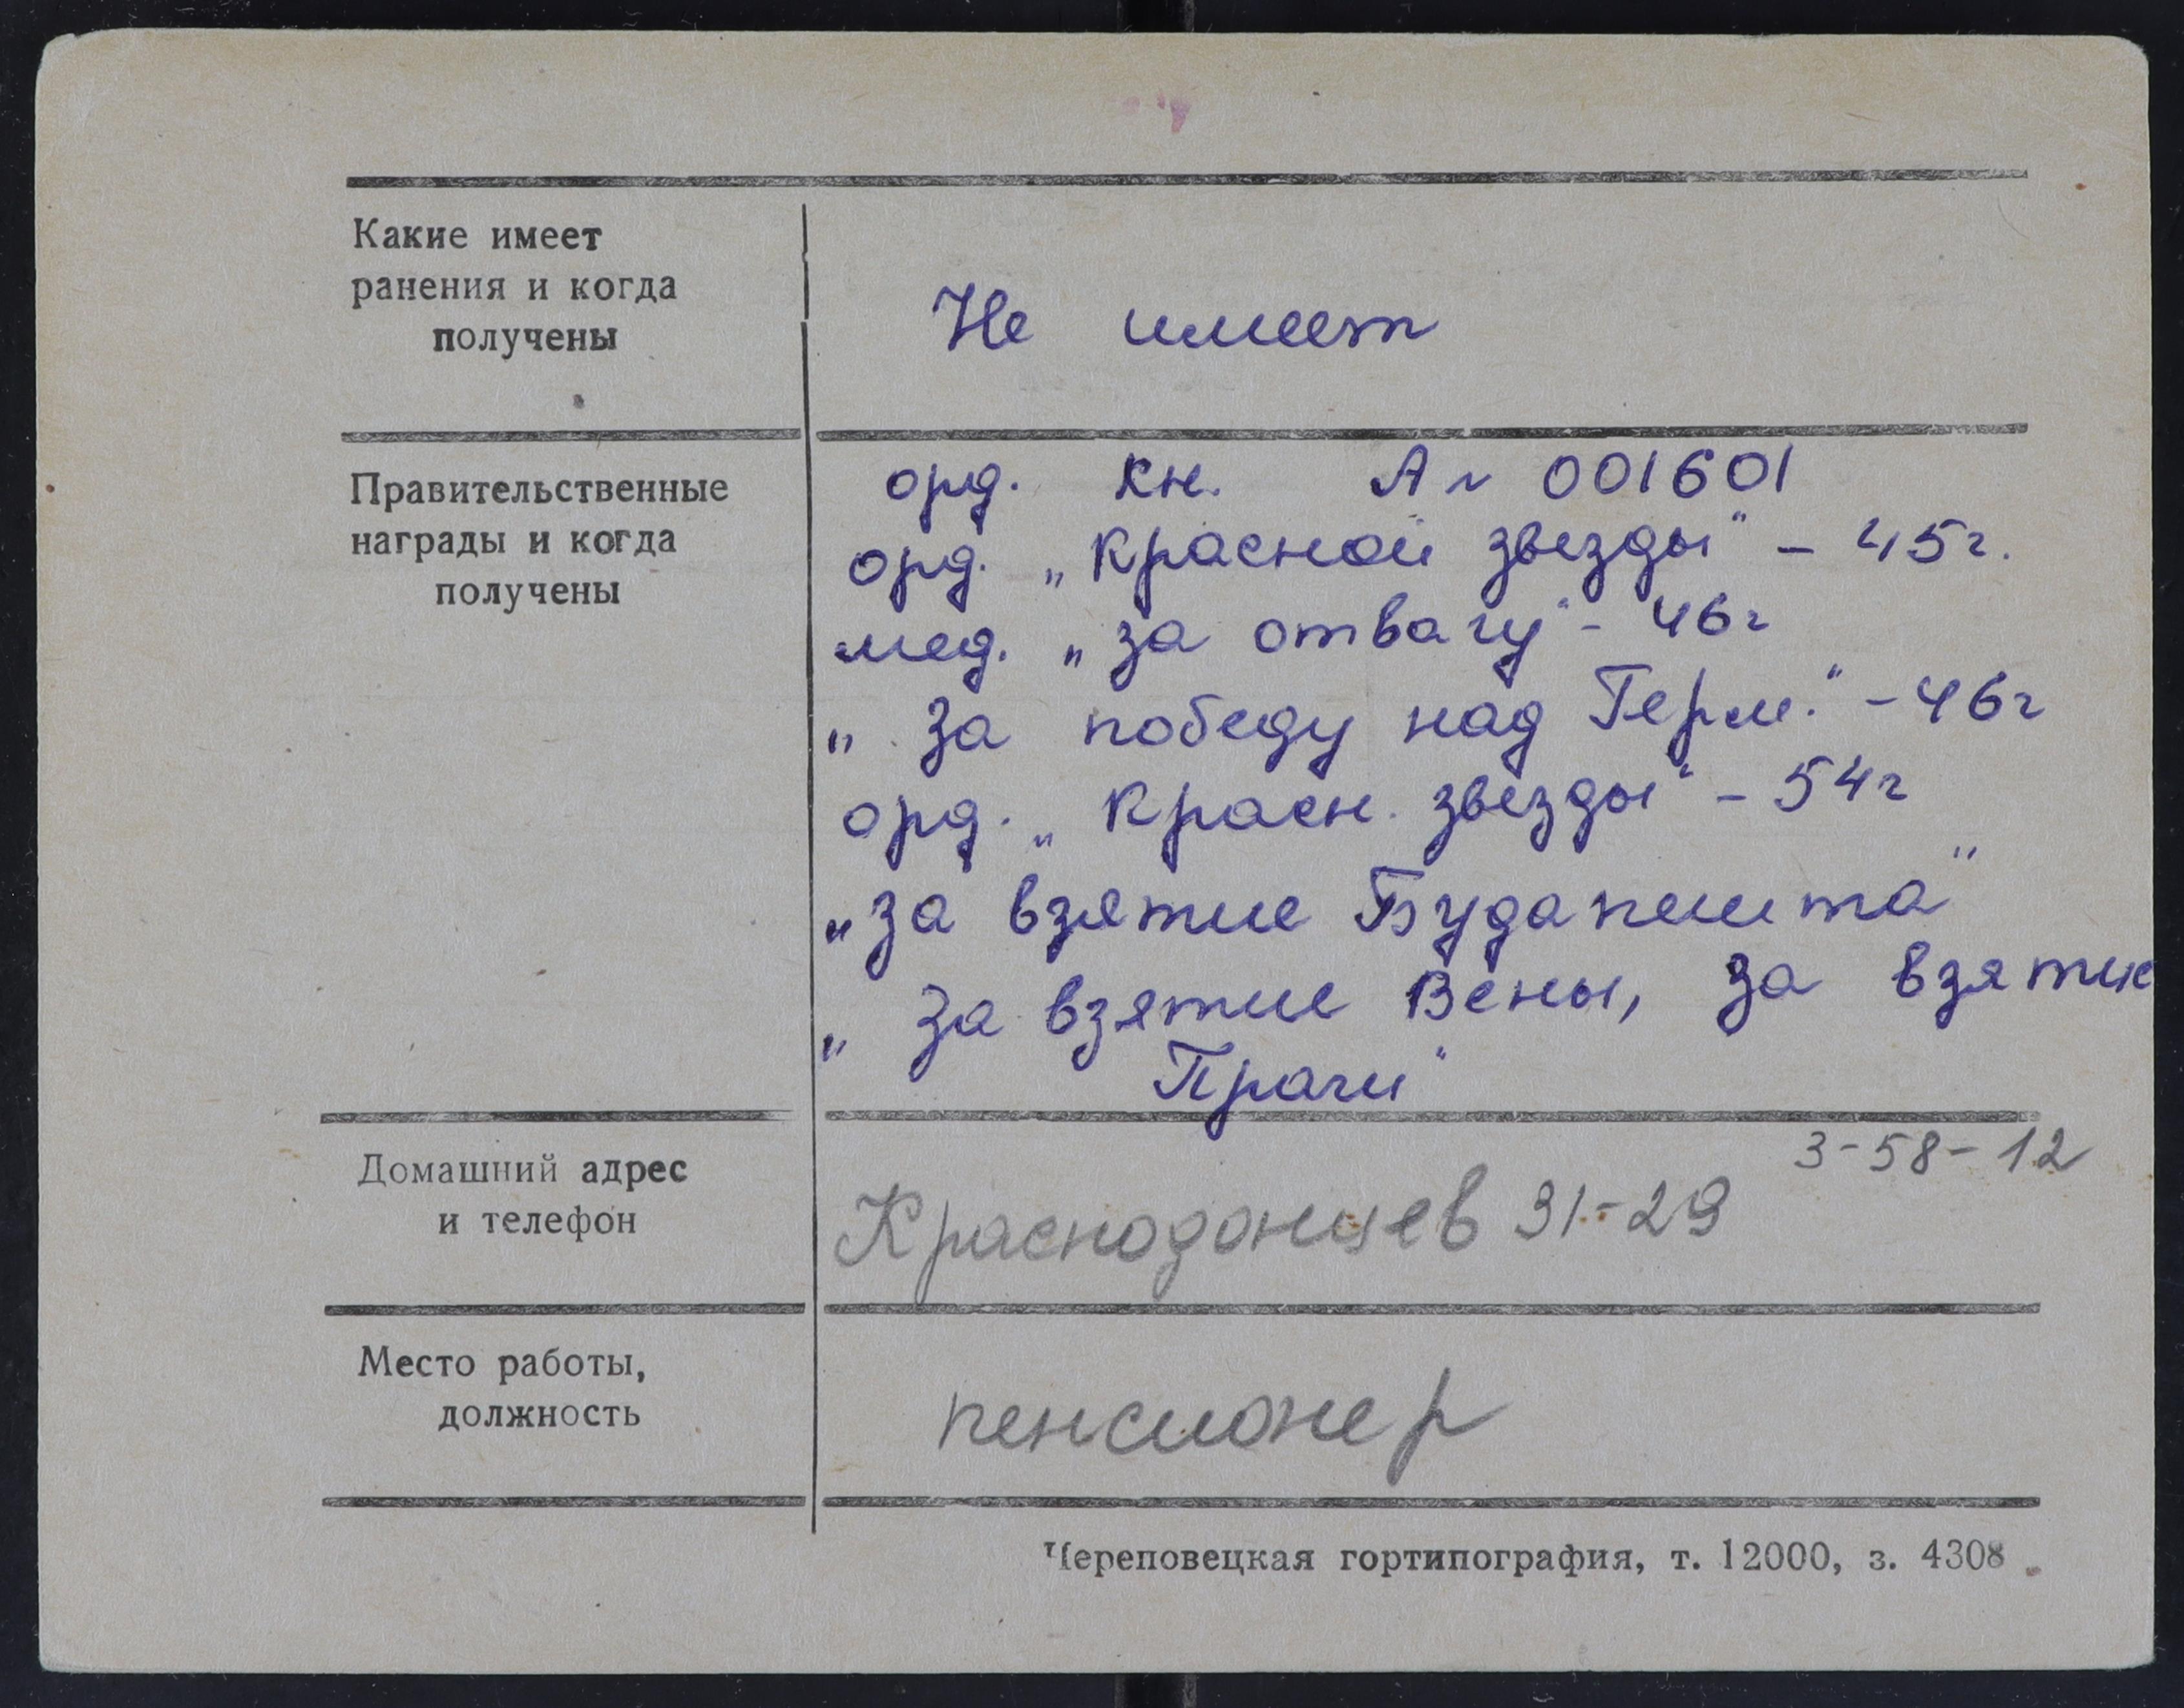 Какие имеет
ранения и когда
получены
Не имеет
Правительственные
награды и когда
получены
орд. кн. А № 001601
орд. „Красной звезды" - 45г.
мед. „за отвагу" - 46г
„ за победу над Герм." - 46г
орд. „Красн. звезды" - 54г
„за взятие Будапешта"
„ за взятие Вены, за взятие
Праги"
Домашний адрес
и телефон
3-58-12
Краснодонцев 31-29
Место работы,
должность
пенсионер
Череповецкая гортипография, т. 12000, з. 4308